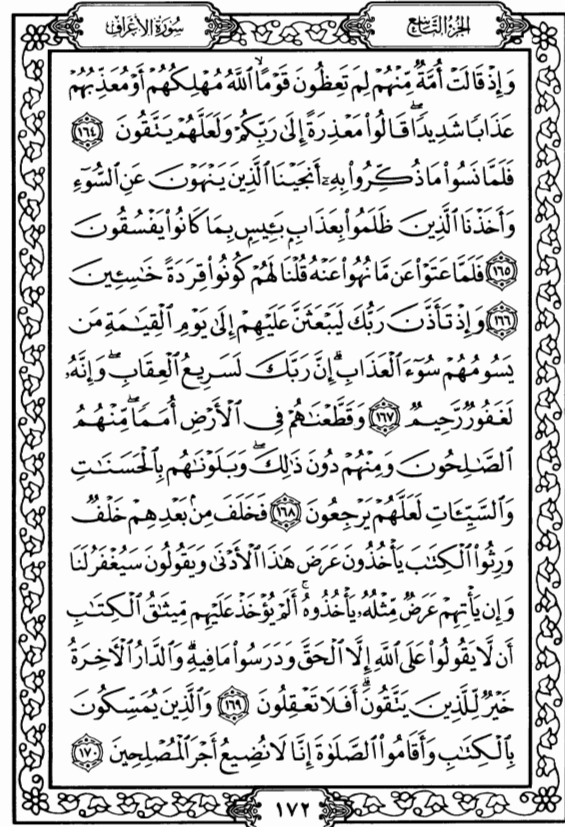 الجزء التاسع
سورة الأعراف
وَإِذْ قَالَتْ أُمَّةٌ مِّنْهُمْ لِمَ تَعِظُونَ قَوْمًا ۙ ٱللَّهُ مُهْلِكُهُمْ أَوْ مُعَذِّبُهُمْ
عَذَابًا شَدِيدًا ۖ قَالُوا۟ مَعْذِرَةً إِلَىٰ رَبِّكُمْ وَلَعَلَّهُمْ يَتَّقُونَ ١٦٤
فَلَمَّا نَسُوا۟ مَا ذُكِّرُوا۟ بِهِۦٓ أَنجَيْنَا ٱلَّذِينَ يَنْهَوْنَ عَنِ ٱلسُّوٓءِ
وَأَخَذْنَا ٱلَّذِينَ ظَلَمُوا۟ بِعَذَابٍۭ بَـِٔيسٍۭ بِمَا كَانُوا۟ يَفْسُقُونَ
١٦٥ فَلَمَّا عَتَوْا۟ عَن مَّا نُهُوا۟ عَنْهُ قُلْنَا لَهُمْ كُونُوا۟ قِرَدَةً خَـٰسِـِٔينَ
١٦٦ وَإِذْ تَأَذَّنَ رَبُّكَ لَيَبْعَثَنَّ عَلَيْهِمْ إِلَىٰ يَوْمِ ٱلْقِيَـٰمَةِ مَن
يَسُومُهُمْ سُوٓءَ ٱلْعَذَابِ ۗ إِنَّ رَبَّكَ لَسَرِيعُ ٱلْعِقَابِ ۖ وَإِنَّهُۥ
لَغَفُورٌ رَّحِيمٌ ١٦٧ وَقَطَّعْنَـٰهُمْ فِى ٱلْأَرْضِ أُمَمًا ۖ مِّنْهُمُ
ٱلصَّـٰلِحُونَ وَمِنْهُمْ دُونَ ذَٰلِكَ ۖ وَبَلَوْنَـٰهُم بِٱلْحَسَنَـٰتِ
وَٱلسَّيِّـَٔاتِ لَعَلَّهُمْ يَرْجِعُونَ ١٦٨ فَخَلَفَ مِنۢ بَعْدِهِمْ خَلْفٌ
وَرِثُوا۟ ٱلْكِتَـٰبَ يَأْخُذُونَ عَرَضَ هَـٰذَا ٱلْأَدْنَىٰ وَيَقُولُونَ سَيُغْفَرُ لَنَا
وَإِن يَأْتِهِمْ عَرَضٌ مِّثْلُهُۥ يَأْخُذُوهُ ۚ أَلَمْ يُؤْخَذْ عَلَيْهِم مِّيثَـٰقُ ٱلْكِتَـٰبِ
أَن لَّا يَقُولُوا۟ عَلَى ٱللَّهِ إِلَّا ٱلْحَقَّ وَدَرَسُوا۟ مَا فِيهِ ۗ وَٱلدَّارُ ٱلْـَٔاخِرَةُ
خَيْرٌ لِّلَّذِينَ يَتَّقُونَ ۗ أَفَلَا تَعْقِلُونَ ١٦٩ وَٱلَّذِينَ يُمَسِّكُونَ
بِٱلْكِتَـٰبِ وَأَقَامُوا۟ ٱلصَّلَوٰةَ إِنَّا لَا نُضِيعُ أَجْرَ ٱلْمُصْلِحِينَ ١٧٠
١٧٢